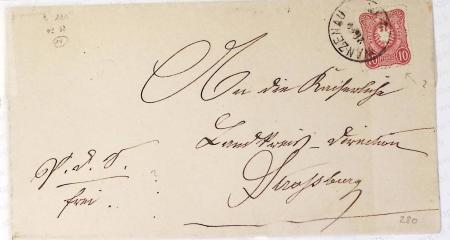 WANZENAU
10 10
An die Kaiserliche
Landkreis-Direction
Strassburg
P. d. S.
frei.
280